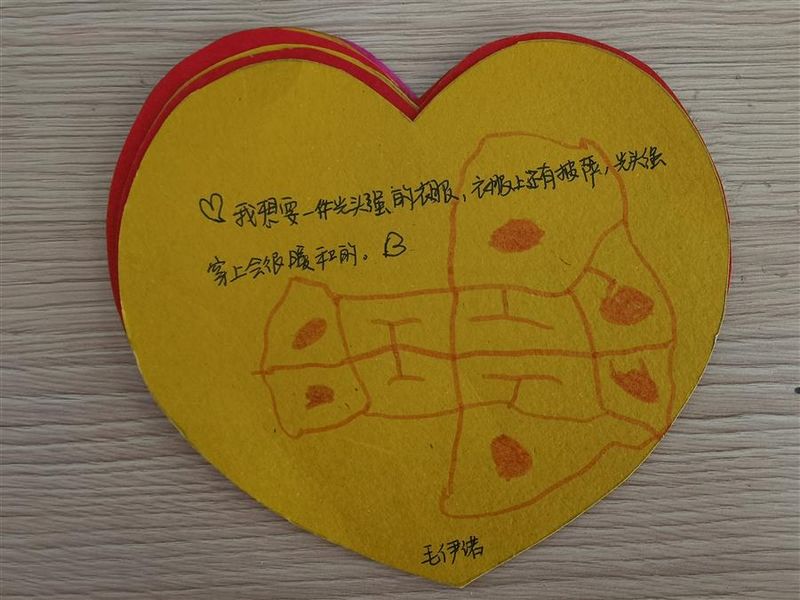 我想要一件光头强的衣服，衣服上还有披萨，光头强
穿上会很暖和的。
毛伊诺